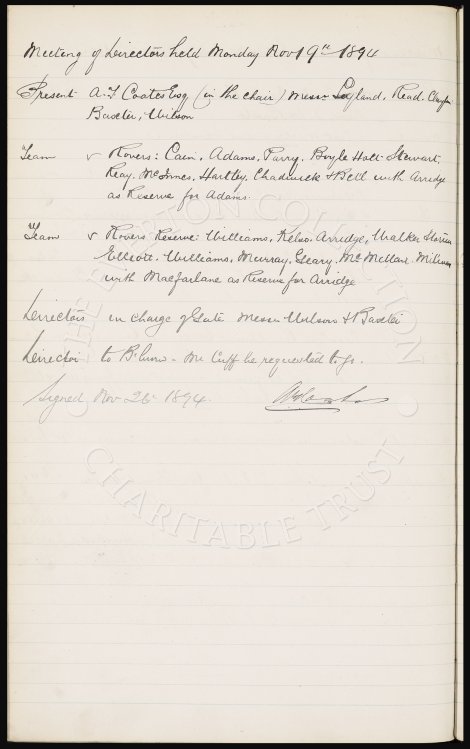 Meeting of Directors held Monday Nov 19th 1894
Present A. T. Coates Esq (in the chair) Messrs Leyland, Read, Clayton
Baxter, Wilson
Team v Rovers: Cain, Adams, Parry, Boyle Holt. Stewart,
Reay, McInnes, Hartley, Chadwick & Bell with Arridge
as Reserve for Adams.
Team v Rovers Reserve: Williams, Kelso. Arridge, Walker Storrier
Elliott. Williams, Murray, Geary, McMillan. Milward
with Macfarlane as Reserve for Arridge
Directors in charge of Gate Messrs Wilson & Baxter
Director to B'burn - Mr Cuff be requested to go.
Signed Nov 26 1894.
THE EVERTON COLLECTION
CHARITABLE TRUST